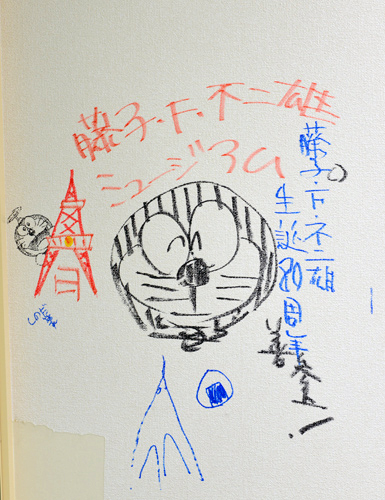 藤子・F・不二雄
ミュージアム
藤子・F・不二雄
生誕80周年
善参上!